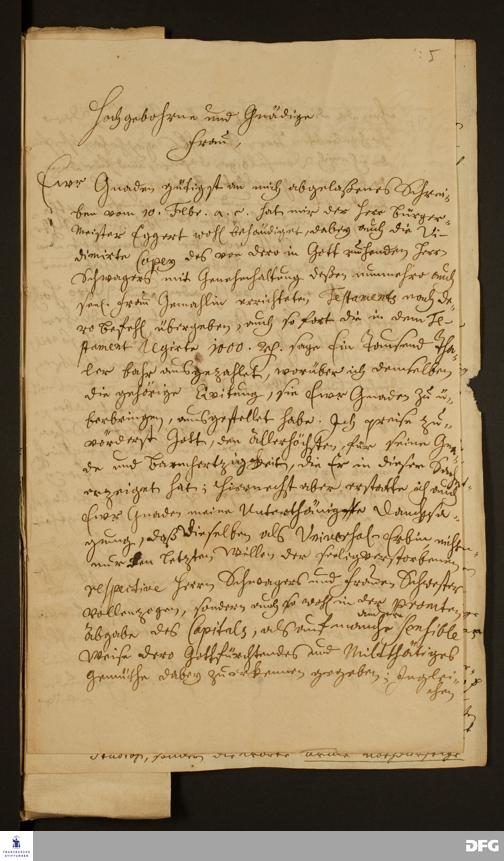 5
Hochgebohrne und Gnädige
Frau,
Ewr Gnaden gütigst an mich abgelaßenes Schrei-
ben vom 10. Febr. a. c. hat mir der Herr Bürger-
meister Eggert wohl behändiget, dabey auch die Vi-
dimirte Copey des von dero in Gott ruhenden Herr
Schwagers mit Genehmhaltung deßen nunmehro auch
seel. Frau Gemahlin errichteten Testaments nach de-
ro befehl übergeben, auch so fort die in dem Te-
stament legirte 1000. rth. sage Ein Tausend Tha-
ler bahr außgezahlet, worüber ich demselben
die gehörige Qvitung, sie Ewr Gnaden zu ü-
berbringen, ausgestellet habe. Ich preise zu-
vörderst Gott, den Allerhöchsten, für seine Gna-
de und Barmhertzigkeit, die Er in dieser Sach
erzeiget hat; hiernechst aber erstatte ich auch
Ewr Gnaden meine Unterthänigste Dancksa-
gung, daß Dieselben als Universal-Erbin nicht
nur den letzten Willen der seeligverstorbenen
respective Herrn Schwagers und Frauen Schwester
vollenzogen, sondern auch so wohl in der promten
Abgabe des Capitals, als auf manche andere sensible
Weise dero Gottfürchtendes und Mildthätiges
Gemüthe dabey zuerkennen gegeben; Inglei-
chen
sondern die Worte arme nothdürftige
FRANCKESCHE STIFTUNGEN
DFG